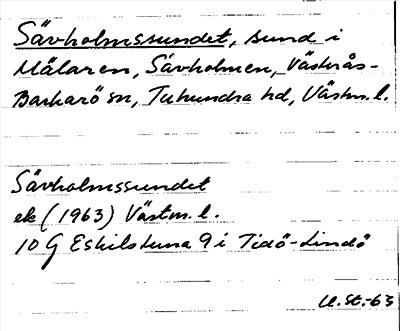 Sävholmssundet, sund i
Mälaren, Sävholmen, Västerås-
Barkarö sn, Tuhundra hd, Västm. l.
Sävholmssundet
ek (1963) Västm. l.
10 G Eskilstuna 9 i Tidö-Lindö
U.St.-63